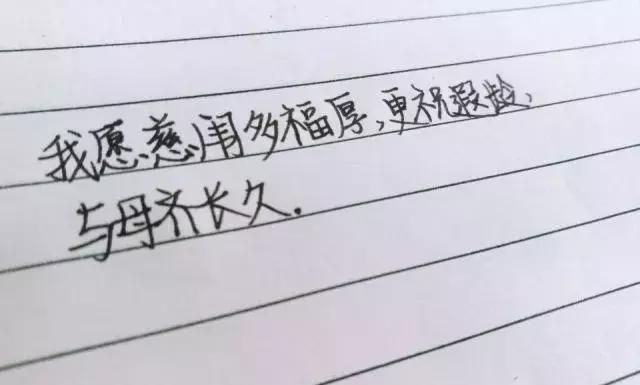 我愿慈闱多福厚,更祝遐龄,
与母齐长久.